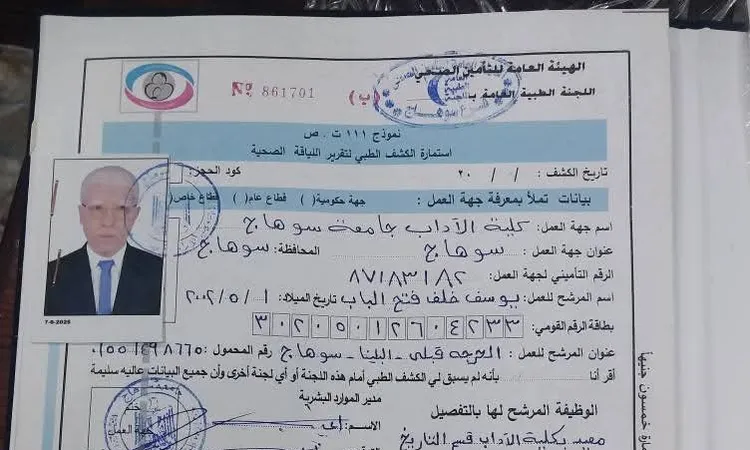 الهيئة العامة للتأمين الصحي
اللجنة الطبية العامة بـ
№ 861701
(ب)
نموذج ١١١ ت . ص
استمارة الكشف الطبي لتقرير اللياقة الصحية
تاريخ الكشف : / / ٢٠ كود الحجز :
بيانات تملأ بمعرفة جهة العمل : جهة حكومية ( ) قطاع عام ( ) قطاع خاص ( )
اسم جهة العمل : كلية الآداب جامعة سوهاج
عنوان جهة العمل : سوهاج المحافظة : سوهاج
الرقم التأميني لجهة العمل : ٨٧١٨٣١٨٢
اسم المرشح للعمل : يوسف خلف فتح الباب تاريخ الميلاد : ١ / ٥ / ٢٠٠٢
بطاقة الرقم القومي : ٣٠٢٠٥٠١٢٦٠٤٢٣٣
عنوان المرشح للعمل : قبلي - البلينا - سوهاج رقم المحمول :
أقر أنا بأنه لم يسبق لي الكشف الطبي أمام هذه اللجنة أو أي لجنة أخرى وأن جميع البيانات عاليه سليمة
7-6-2025
الوظيفة المرشح لها بالتفصيل
معيد بكلية الآداب قسم التاريخ
مدير الموارد البشرية
الاسم :
جهة العمل
خمسون جنيها